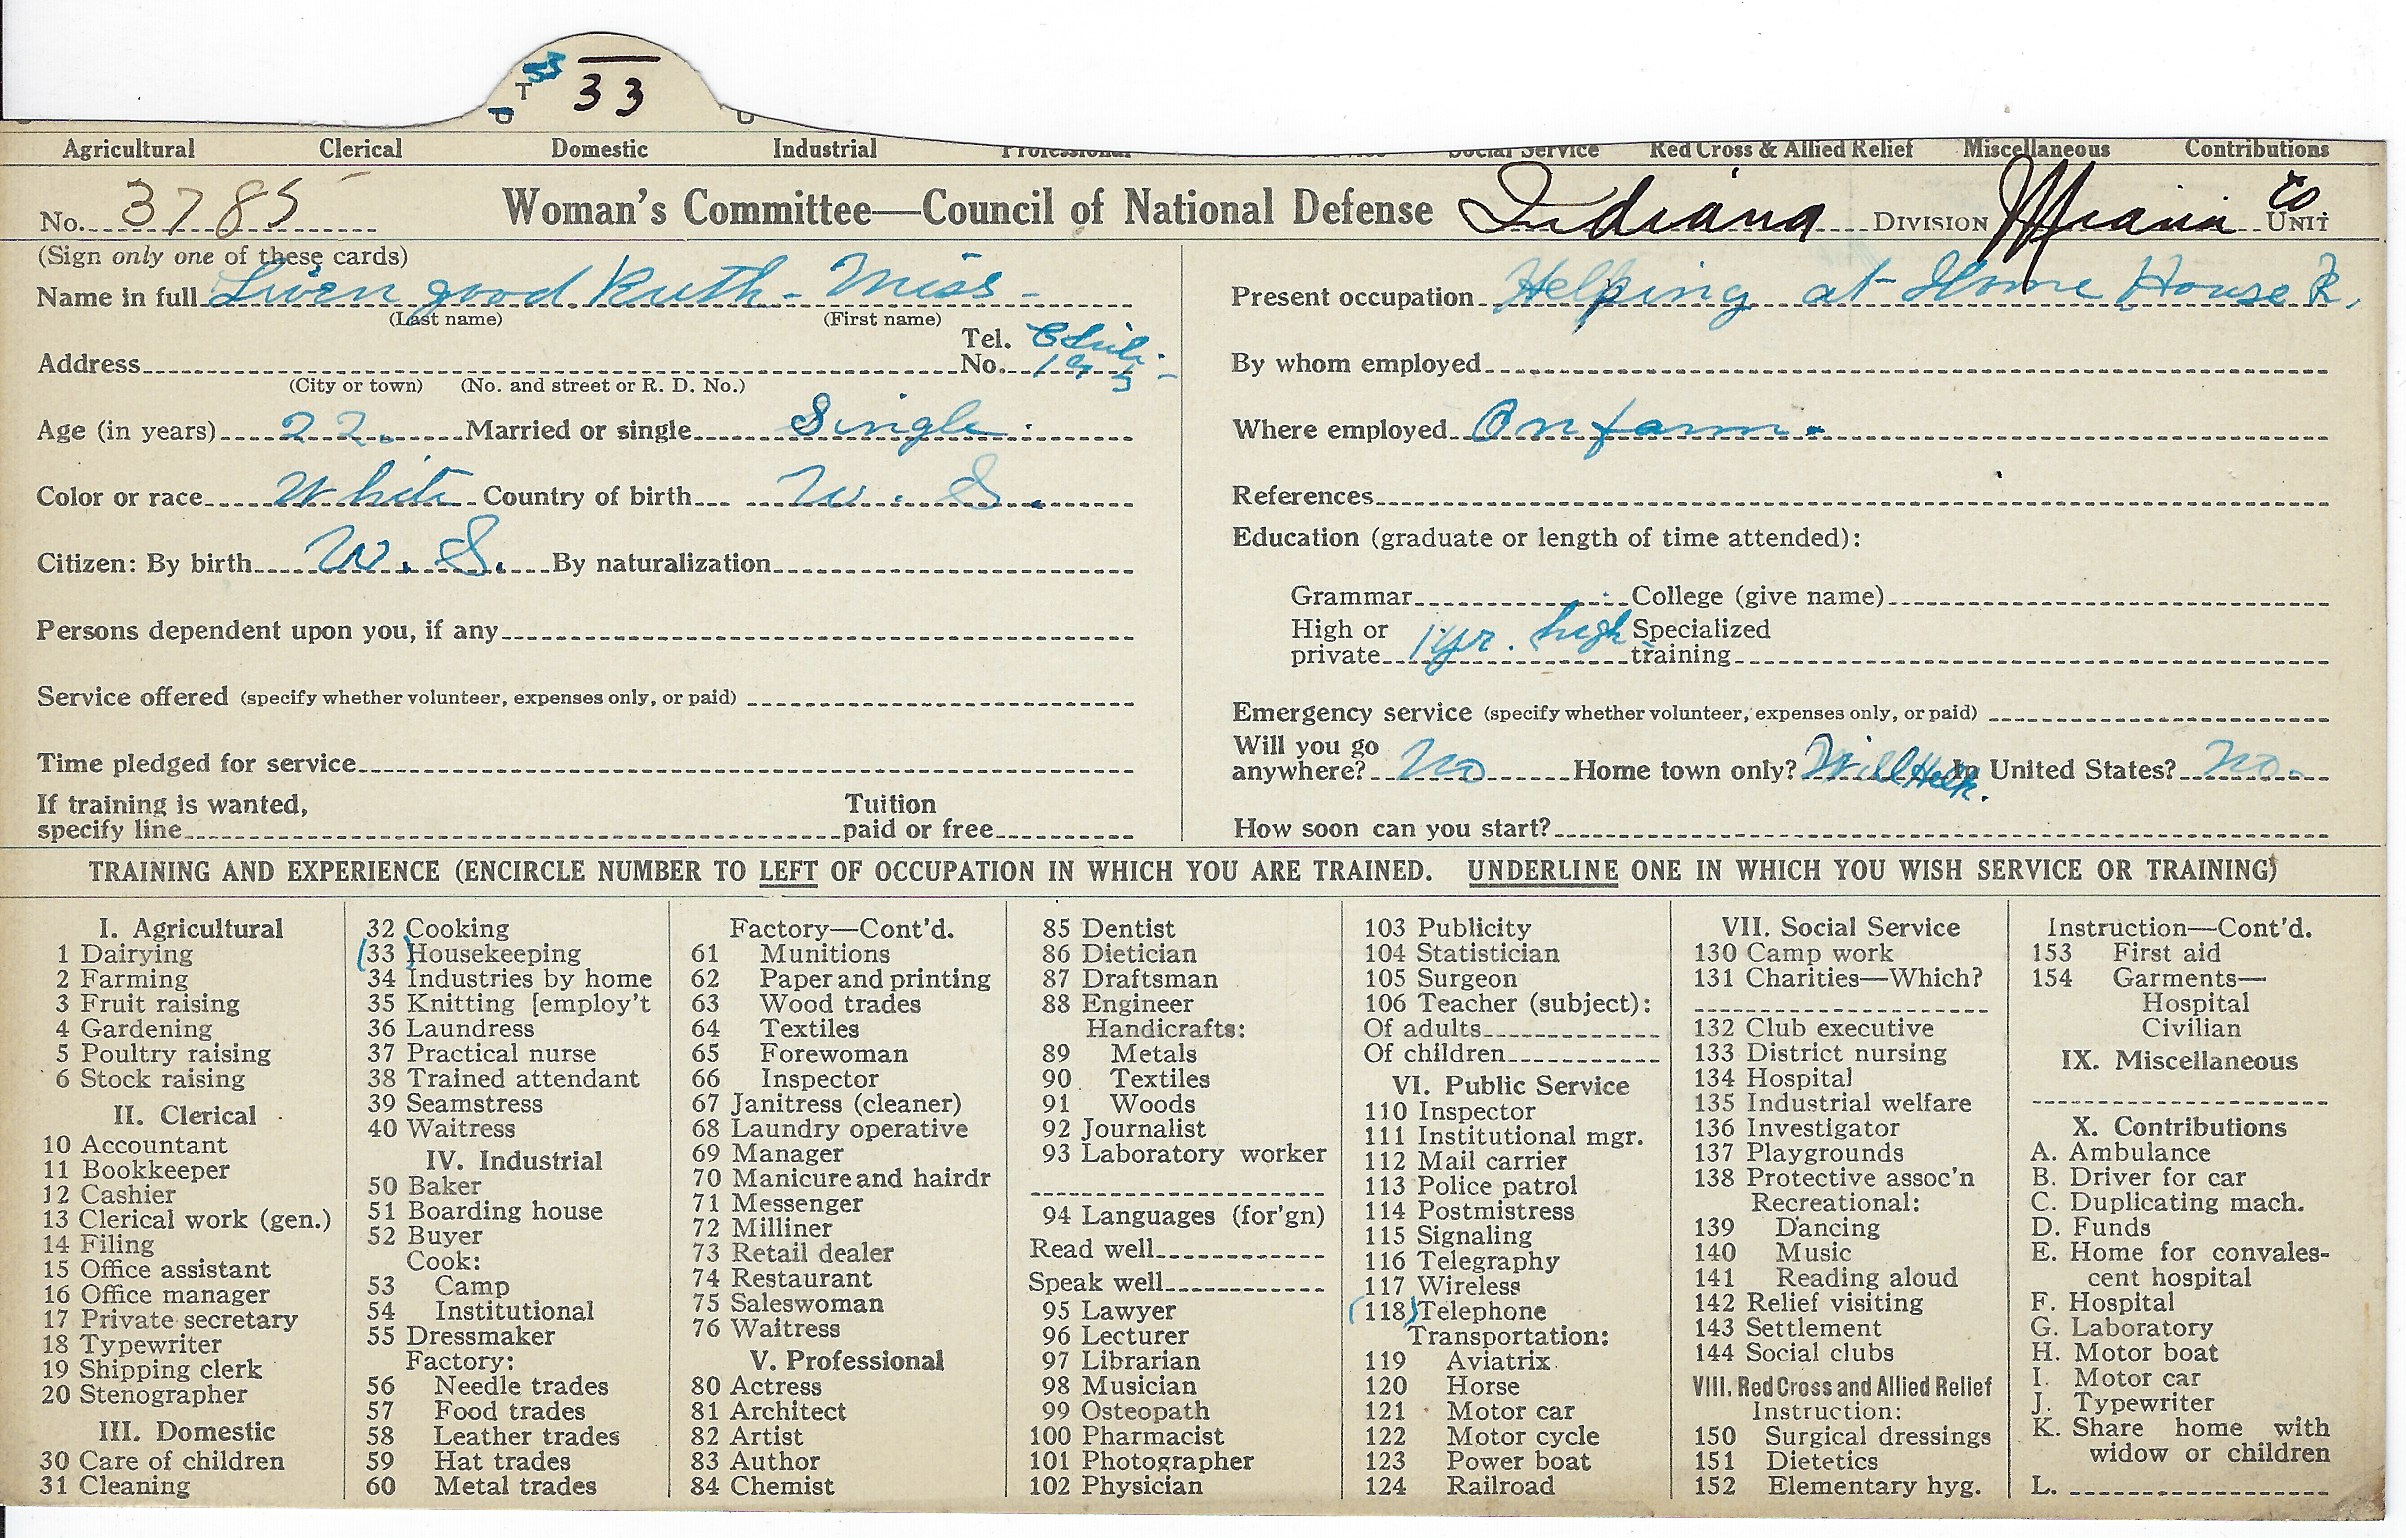 33
33
T
Agricultural Clerical Domestic Industrial Professional Social Service Red Cross & Allied Relief Miscellaneous Contributions
No. 3785 Woman's Committee—Council of National Defense Indiana DIVISION Miami Co UNIT
(Sign only one of these cards)
Name in full Livengood Ruth - Miss -
(Last name) (First name)
Address Tel. No. 195
(City or town) (No. and street or R. D. No.)
Age (in years) 22. Married or single Single.
Color or race White Country of birth U. S.
Citizen: By birth U. S. By naturalization
Persons dependent upon you, if any
Service offered (specify whether volunteer, expenses only, or paid)
Time pledged for service
If training is wanted, specify line Tuition paid or free
Present occupation Helping at Home House K.
By whom employed
Where employed On farm.
References
Education (graduate or length of time attended):
Grammar College (give name)
High or private 1 yr. high Specialized training
Emergency service (specify whether volunteer, expenses only, or paid)
Will you go anywhere? No Home town only? Will Help. In United States? No.
How soon can you start?
TRAINING AND EXPERIENCE (ENCIRCLE NUMBER TO LEFT OF OCCUPATION IN WHICH YOU ARE TRAINED. UNDERLINE ONE IN WHICH YOU WISH SERVICE OR TRAINING)
I. Agricultural
1 Dairying
2 Farming
3 Fruit raising
4 Gardening
5 Poultry raising
6 Stock raising
II. Clerical
10 Accountant
11 Bookkeeper
12 Cashier
13 Clerical work (gen.)
14 Filing
15 Office assistant
16 Office manager
17 Private secretary
18 Typewriter
19 Shipping clerk
20 Stenographer
III. Domestic
30 Care of children
31 Cleaning
32 Cooking
(33) Housekeeping
34 Industries by home
35 Knitting [employ't
36 Laundress
37 Practical nurse
38 Trained attendant
39 Seamstress
40 Waitress
IV. Industrial
50 Baker
51 Boarding house
52 Buyer
Cook:
53 Camp
54 Institutional
55 Dressmaker
Factory:
56 Needle trades
57 Food trades
58 Leather trades
59 Hat trades
60 Metal trades
Factory—Cont'd.
61 Munitions
62 Paper and printing
63 Wood trades
64 Textiles
65 Forewoman
66 Inspector
67 Janitress (cleaner)
68 Laundry operative
69 Manager
70 Manicure and hairdr
71 Messenger
72 Milliner
73 Retail dealer
74 Restaurant
75 Saleswoman
76 Waitress
V. Professional
80 Actress
81 Architect
82 Artist
83 Author
84 Chemist
85 Dentist
86 Dietician
87 Draftsman
88 Engineer
Handicrafts:
89 Metals
90 Textiles
91 Woods
92 Journalist
93 Laboratory worker
94 Languages (for'gn)
Read well
Speak well
95 Lawyer
96 Lecturer
97 Librarian
98 Musician
99 Osteopath
100 Pharmacist
101 Photographer
102 Physician
103 Publicity
104 Statistician
105 Surgeon
106 Teacher (subject):
Of adults
Of children
VI. Public Service
110 Inspector
111 Institutional mgr.
112 Mail carrier
113 Police patrol
114 Postmistress
115 Signaling
116 Telegraphy
117 Wireless
(118) Telephone
Transportation:
119 Aviatrix
120 Horse
121 Motor car
122 Motor cycle
123 Power boat
124 Railroad
VII. Social Service
130 Camp work
131 Charities—Which?
132 Club executive
133 District nursing
134 Hospital
135 Industrial welfare
136 Investigator
137 Playgrounds
138 Protective assoc'n
Recreational:
139 Dancing
140 Music
141 Reading aloud
142 Relief visiting
143 Settlement
144 Social clubs
VIII. Red Cross and Allied Relief
Instruction:
150 Surgical dressings
151 Dietetics
152 Elementary hyg.
Instruction—Cont'd.
153 First aid
154 Garments—
Hospital
Civilian
IX. Miscellaneous
X. Contributions
A. Ambulance
B. Driver for car
C. Duplicating mach.
D. Funds
E. Home for convales-
cent hospital
F. Hospital
G. Laboratory
H. Motor boat
I. Motor car
J. Typewriter
K. Share home with
widow or children
L.